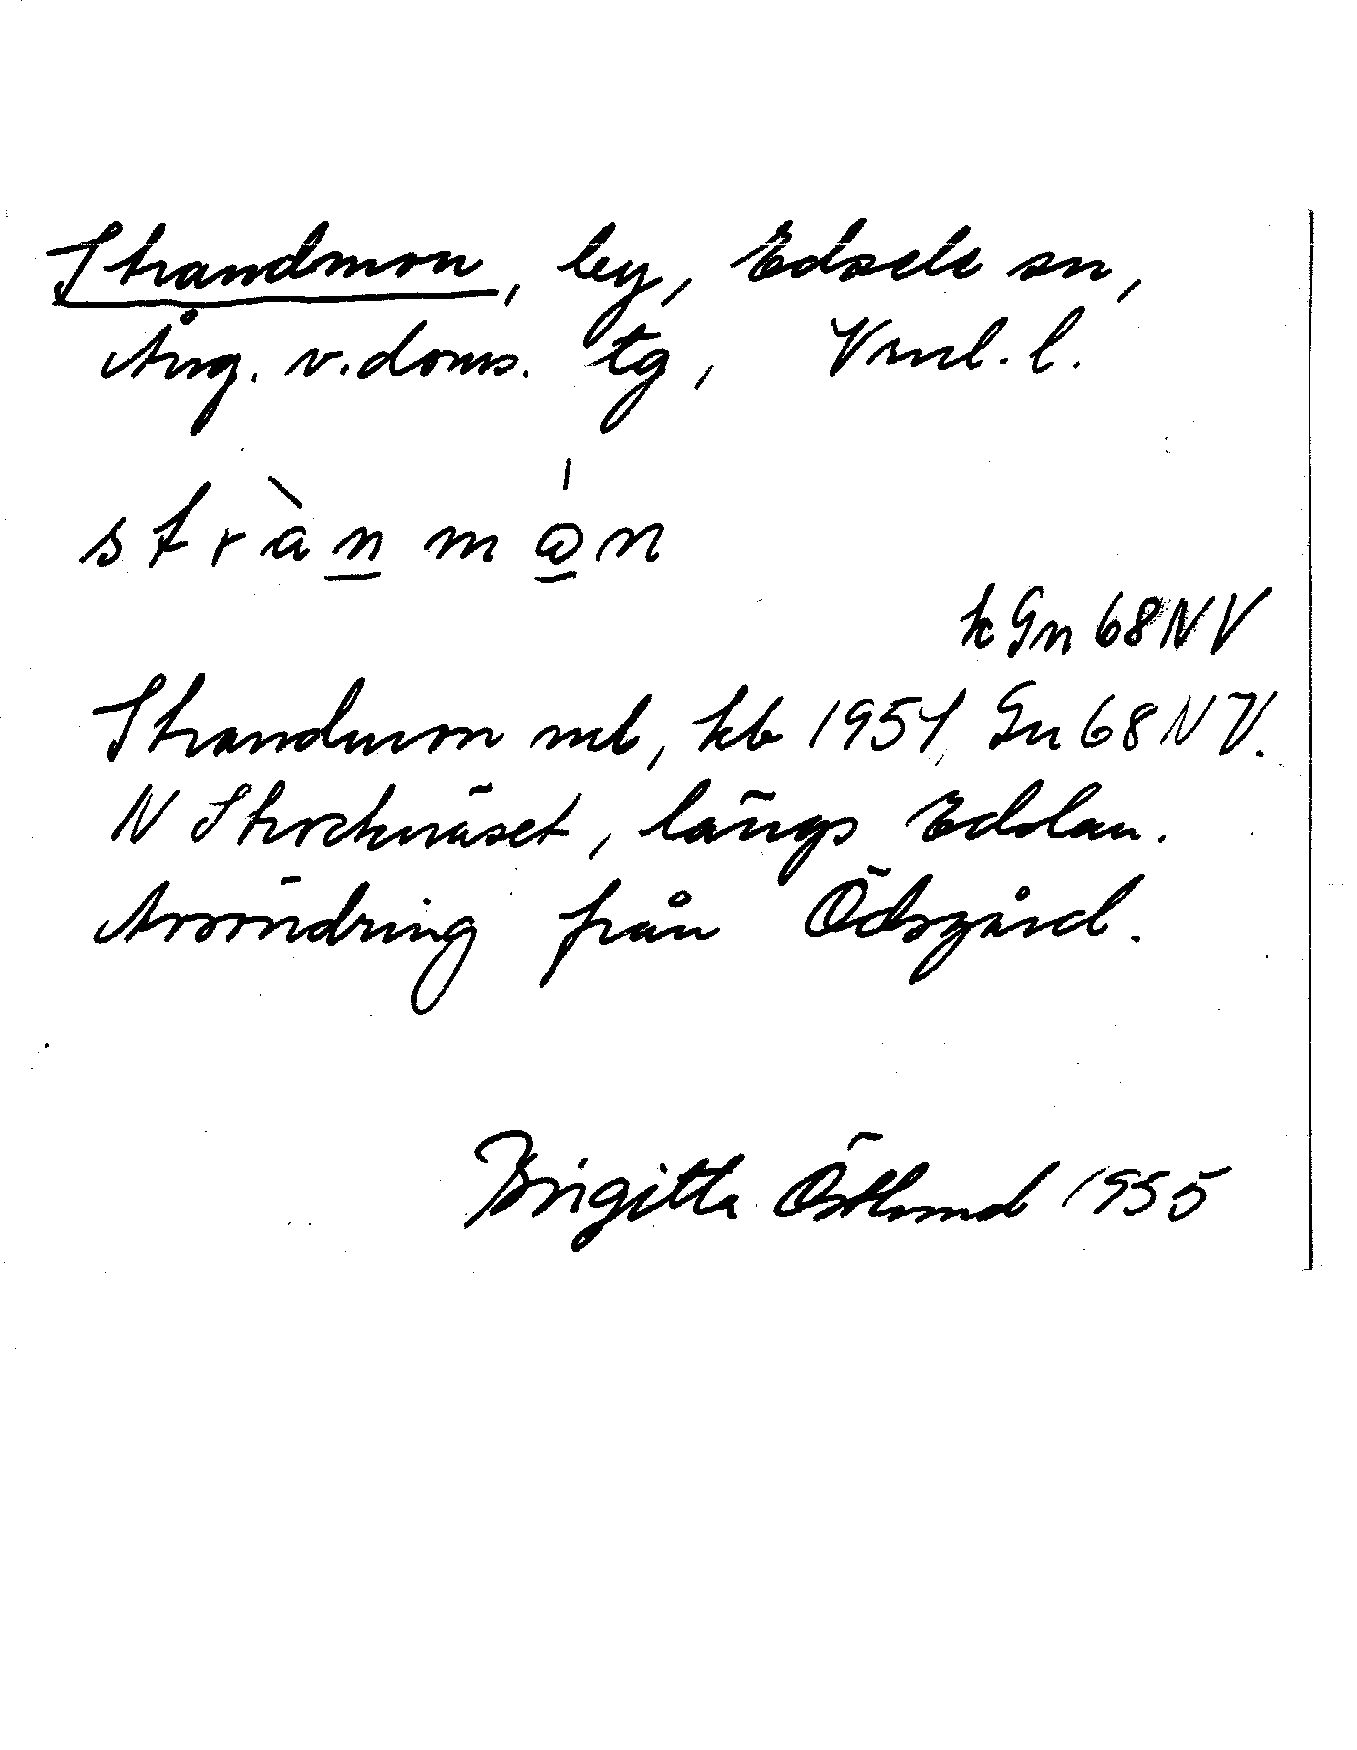 Strandmon, by, Edsele sn,
Ång. v. doms. tg, Vrnl. l.
strànmo̲n
k Gn 68 NV
Strandmon mb, kb 1951, Gn 68 NV.
N Stocknäset, längs Edslan.
Avsöndring från Ödsgård.
Birgitta Östlund 1955